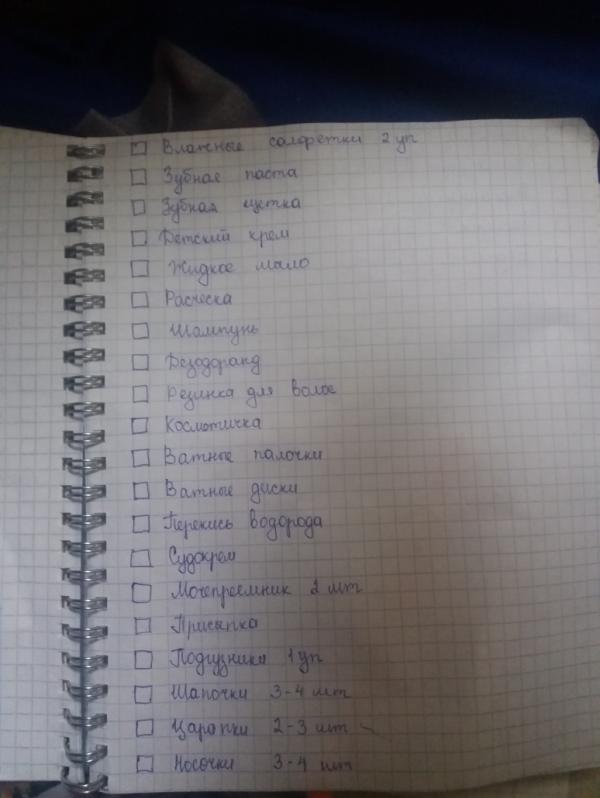 Влажные салфетки 2 уп
Зубная паста
Зубная щетка
Детский крем
Жидкое мыло
Расческа
Шампунь
Дезодоранд
Резинка для волос
Косметичка
Ватные палочки
Ватные диски
Перекись водорода
Судокрем
Мочеприемник 2 шт
Присыпка
Подгузники 1 уп
Шапочки 3-4 шт
Царапки 2-3 шт
Носочки 3-4 шт